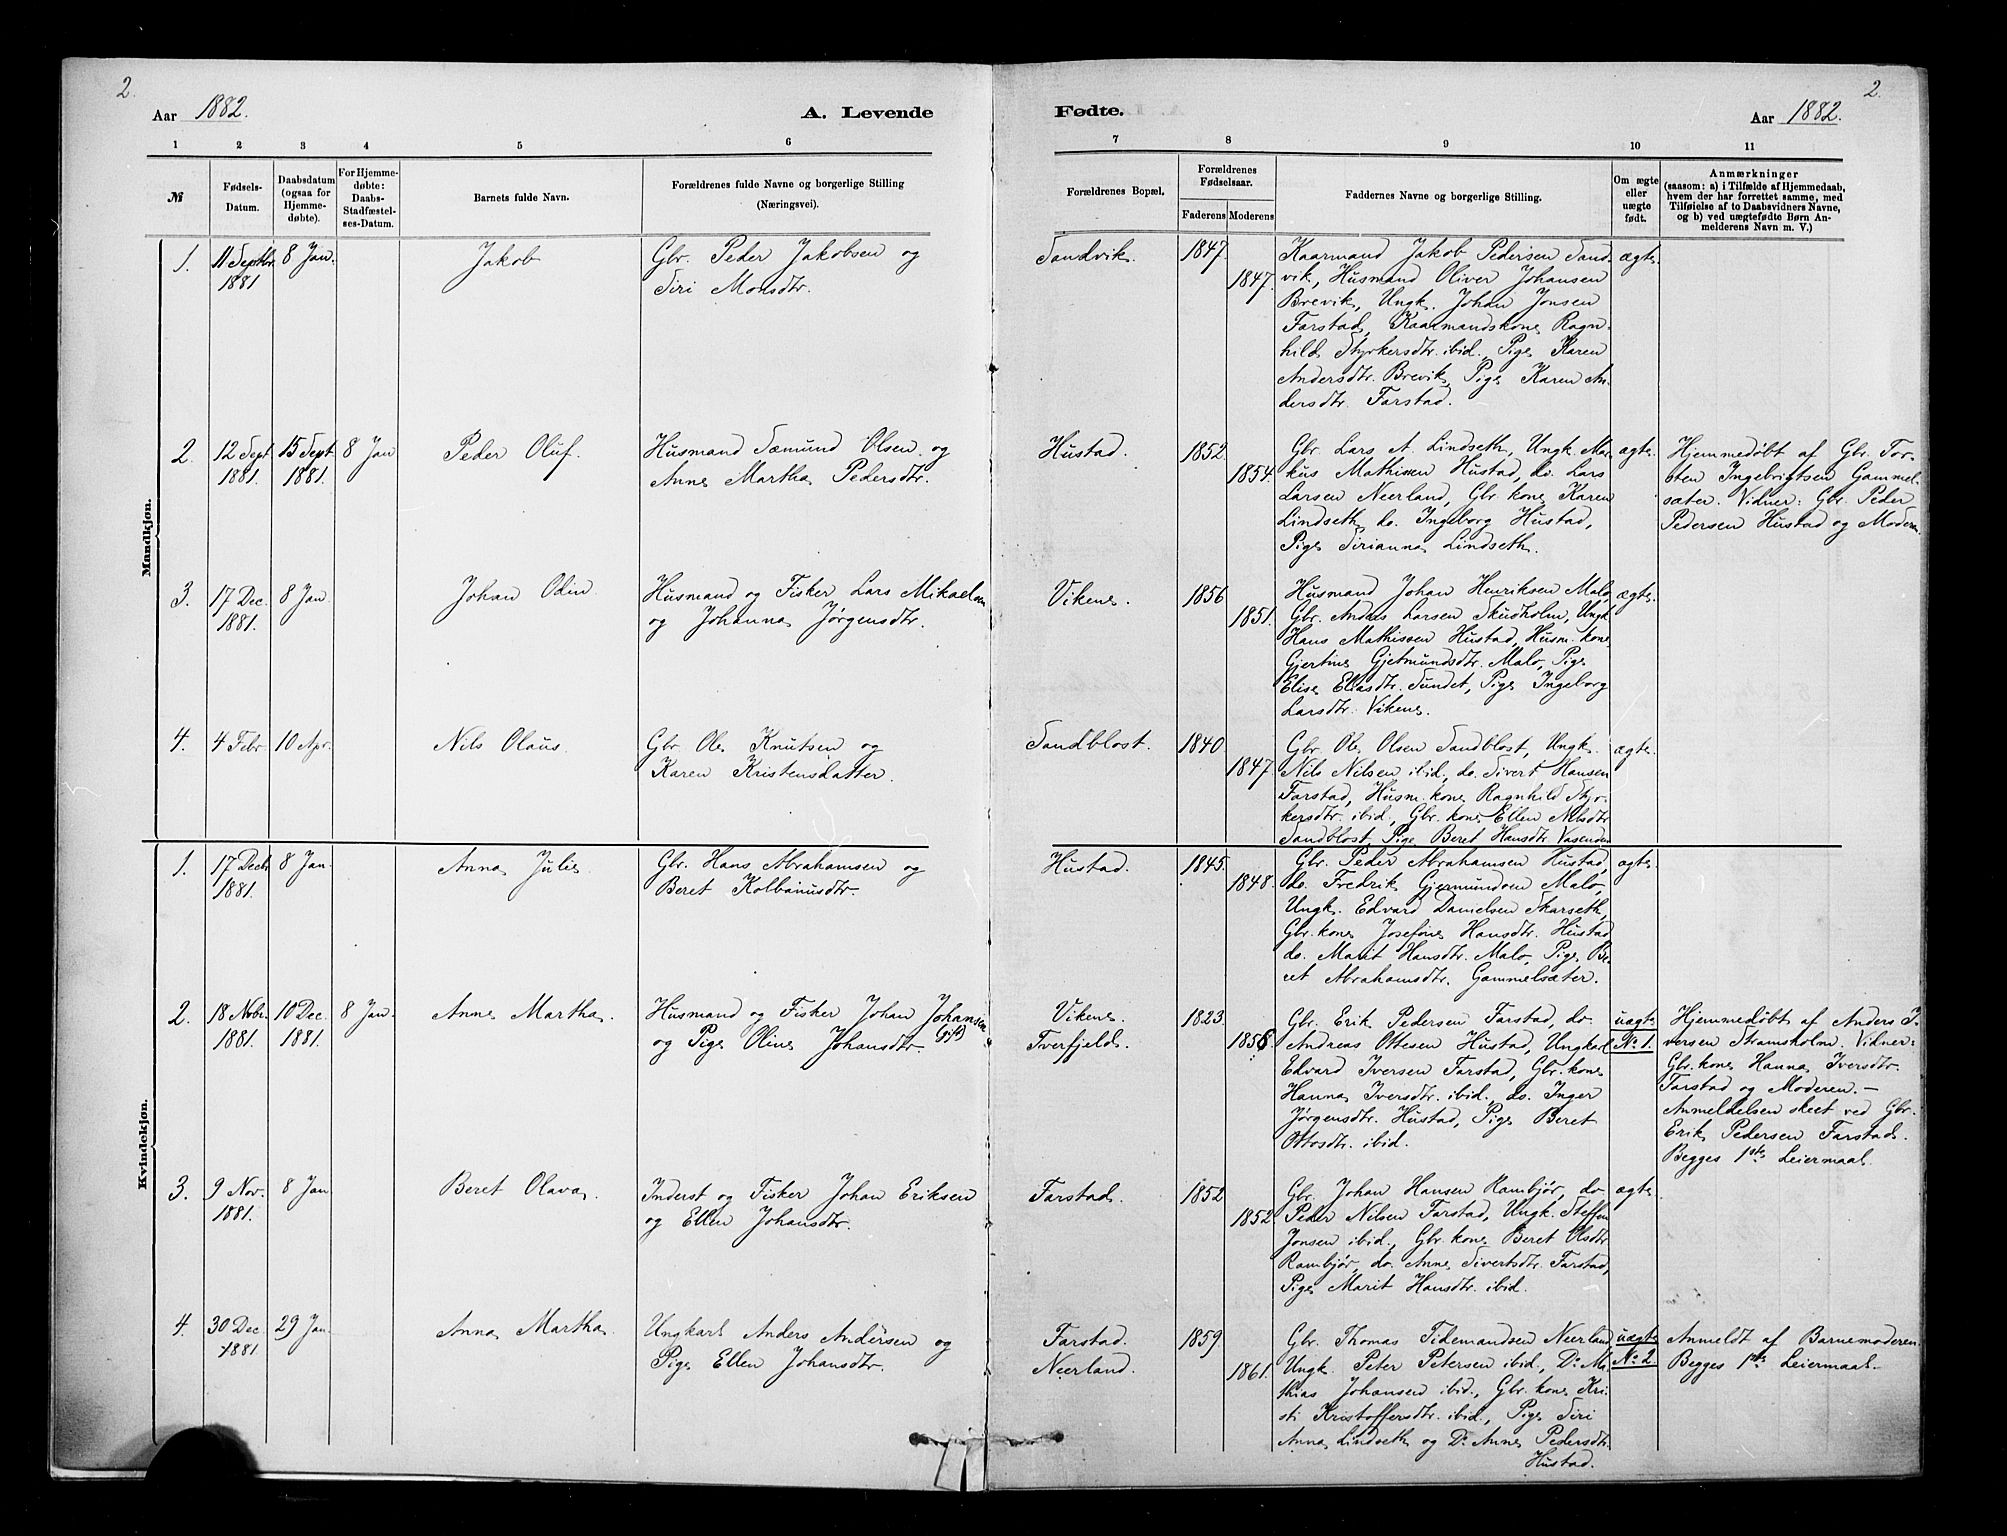 2.
Aar 1882. A. Levende
1 2 3 4 5 6
№ Fødsels-Datum. Daabsdatum (ogsaa for Hjemmedøbte). For Hjemmedøbte: Daabs-Stadfæstelses-Datum. Barnets fulde Navn. Forældrenes fulde Navne og borgerlige Stilling (Næringsvei).
Mandkjøn.
1. 11 Septbr. 8 Jan. Jakob Gbr. Peder Jakobsen og
1881 Siri Monsdtr.
2. 12 Sept 15 Sept 8 Jan Peder Oluf. Husmand Sæmund Olsen og
1881. 1881. Anne Martha Pedersdtr.
3. 17 Dec. 8 Jan. Johan Odin. Husmand og Fisker Lars Mikaelsen
1881. og Johanna Jørgensdtr.
4. 4 Febr. 10 Apr. Nils Olaus. Gbr. Ole Knutsen og
Karen Kristensdatter.
Kvindekjøn.
1. 17 Decb. 8 Jan. Anna Julie. Gbr. Hans Abrahamsen og
1881. Beret Kolbanusdtr.
2. 18 Novbr. 10 Dec. 8 Jan. Anne Martha. Husmand og Fisker Johan Johansen
1881. 1881. og Pige Oline Johansdtr. (gift)
3. 9 Nov. 8 Jan Beret Olava. Inderst og Fisker Johan Eriksen
1881. og Ellen Johansdtr.
4. 30 Dec 29 Jan. Anna Martha. Ungkarl Anders Andersen og
1881 Pige Ellen Johansdtr.
2.
Fødte. Aar 1882.
7 8 9 10 11
Forældrenes Bopæl. Forældrenes Fødselsaar. Faderens Moderens Faddernes Navne og borgerlige Stilling. Om ægte eller uægte født. Anmærkninger
(saasom: a) i Tilfælde af Hjemmedaab,
hvem der har forrettet samme, med
Tilføielse af to Daabsvidners Navne,
og b) ved uægtefødte Børn Anmelderens
Navn m. V.)
Sandvik. 1847. Kaarmand Jakob Pedersen Sand- ægte.
1847. vik, Husmand Oliver Johansen
Brevik, Ungk. Johan Jonsen
Farstad, Kaarmandskone Ragn-
hild Styrkersdtr. ibid., Pige Karen
Andersdtr. Brevik, Pige Karen An-
dersdtr. Farstad.
Hustad. 1852. Gbr. Lars A. Lindseth, Ungk Mar- ægte. Hjemmedøbt af Gbr. Tor-
1854. kus Mathissen Hustad, do. Lars sten Ingebrigtsen Gammel-
Larsen Neerland, Gbr. kone Karen sæter. Vidner: Gbr. Peder
Lindseth do. Ingeborg Hustad, Pedersen Hustad og Moderen.
Pige Sirianna Lindseth.
Vikene. 1856 Husmand Johan Henriksen Malo, ægte.
1851. Gbr. Andreas Larsen Skudholm, Ungk
Hans Mathissen Hustad, Husm. kone
Gjertine Gjetmundsdtr. Malo, Pige
Elise Eliasdtr. Sundet, Pige Ingeborg
Larsdtr. Vikene.
Sandblost. 1840. Gbr. Ole Olsen Sandblost, Ungk. ægte.
1847. Nils Nilsen ibid., do. Sivert Hansen
Farstad, Husm. kone Ragnhild Styr-
kersdtr. ibid., Gbr. kone Ellen Nilsdtr
Sandblost, Pige Beret Hansdtr Vasenden
Hustad. 1845. Gbr. Peder Abrahamsen Hustad, ægte.
1848. do. Fredrik Gjermundsen Malo,
Ungk. Edvard Danielsen Skarseth,
Gbr. kone Josefine Hansdtr. Hustad
do. Marit Hansdtr. Malo, Pige Be-
ret Abrahamsdtr. Gammelsæter.
Vikene. 1823. Gbr. Erik Pedersen Farstad, do. uægte Hjemmedøbt af Anders I-
Tverfjeld. 1858. Andreas Ottesen Hustad, Ungkarl No 1. versen Stramsholm. Vidner:
Edvard Iversen Farstad, Gbr. kone Gbr. kone Hanna Iversdtr.
Hanna Iversdtr. ibid. do. Inger Farstad og Moderen.—
Jørgensdtr. Hustad, Pige Beret Anmeldelsen skeet ved Gbr.
Ottosdtr. ibid. Erik Pedersen Farstad.
Begges 1ste Leiermaal.
Farstad. 1852 Gbr. Johan Hansen Rambjør, do ægte.
1852 Peder Nilsen Farstad, Ungk. Steffen
Jonsen ibid., Gbr. kone Beret Olsdtr
Rambjør, do. Anne Sivertsdtr. Farstad,
Pige Marit Hansdtr. ibid.
Farstad. 1859. Gbr. Thomas Tidemandsen Neerland uægte Anmeldt af Barnemoderen.
Neerland. 1861. Ungk. Peter Petersen ibid., Do Ma- No 2. Begges 1ste Leiermaal.
thias Johansen ibid., Gbr. kone Kri-
sti Kristoffersdtr. ibid., Pige Siri
Anna Lindseth og Do Anne Pedersdtr.
Hustad.